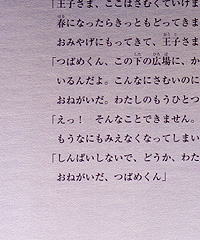 「王子さま、ここはさむくていけま
春になったらきっともどってきま
おみやげにもってきて、王子さま
「つばめくん、この下の広場に、か
いるんだよ。こんなにさむいのに
おねがいだ。わたしのもうひとつ
「えっ！　そんなことできません。
もうなにもみえなくなってしまい
「しんぱいしないで、どうか、わた
おねがいだ、つばめくん」